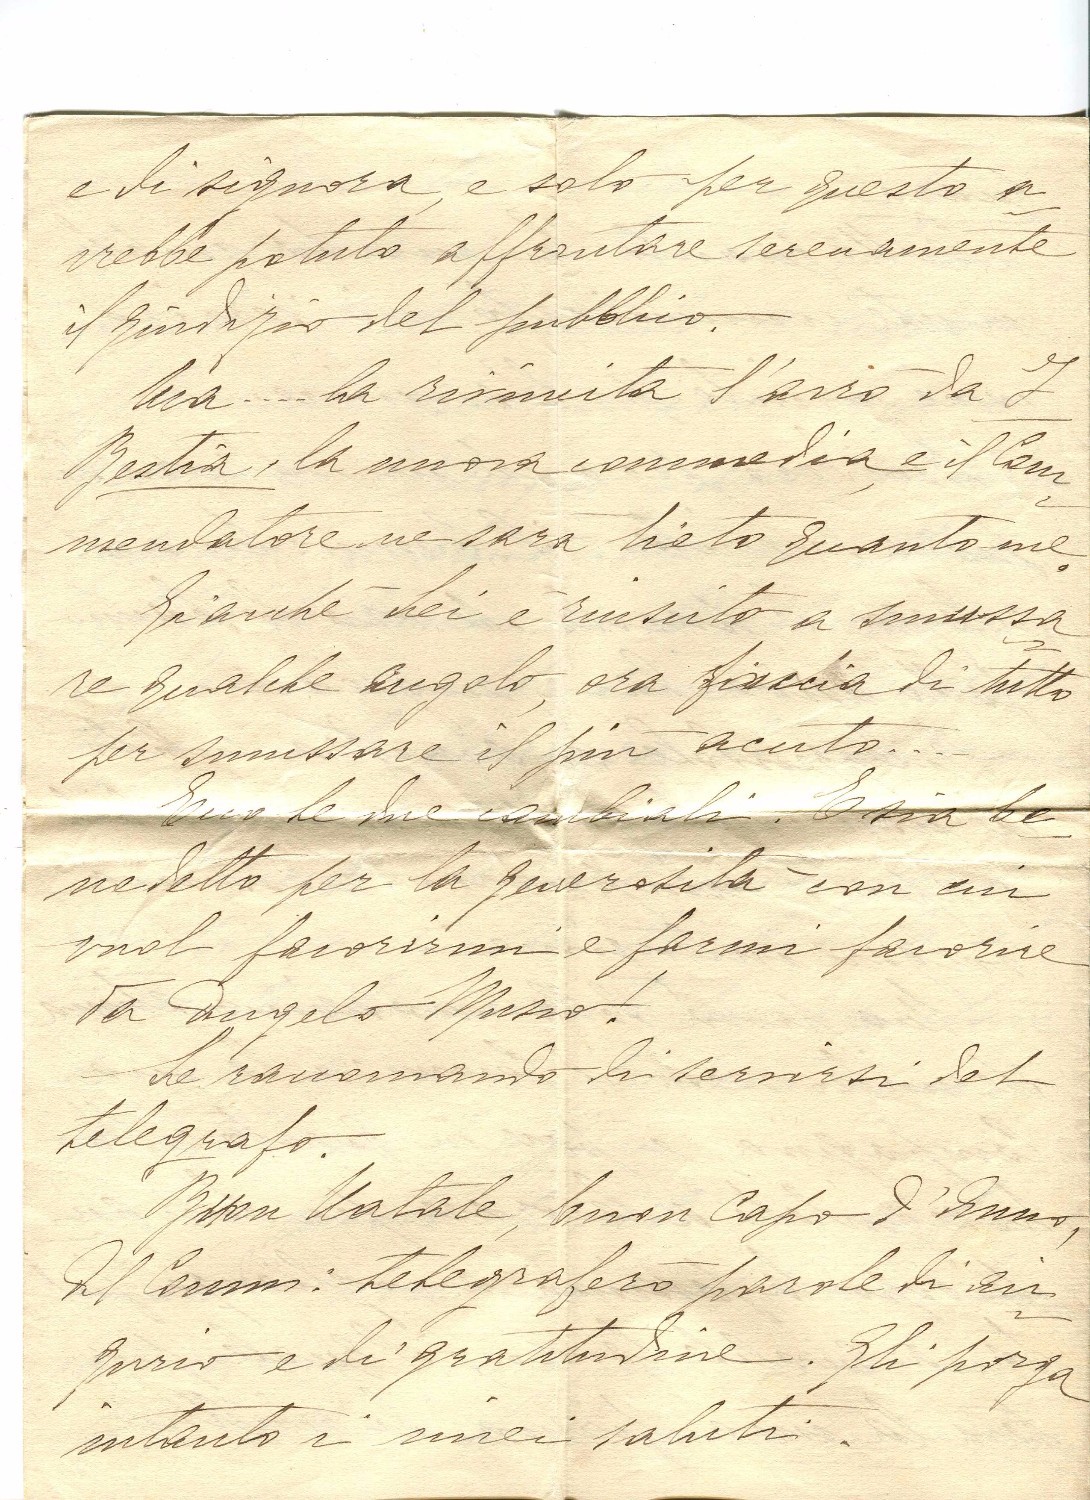 e di signora, e solo per questo a-
vrebbe potuto affrontare serenamente
il giudizio del pubblico.
Ma.... la rivincita l'avrò da I
Bestia, la nuova commedia, e il Com-
mendatore ne sarà lieto quanto me.
Giacchè Lei è riuscito a smussa-
re qualche angolo, ora faccia di tutto
per smussare il più acuto....
Ecco le due cambiali. E sia be-
nedetto per la generosità con cui
vuol favorirmi e farmi favorire
da Angelo Musco!
Le raccomando di servirsi del
telegrafo.
Buon Natale, buon Capo d'Anno,
Al Comm: telegraferò parole di au-
gurio e di gratitudine. Gli porga
intanto i miei saluti.